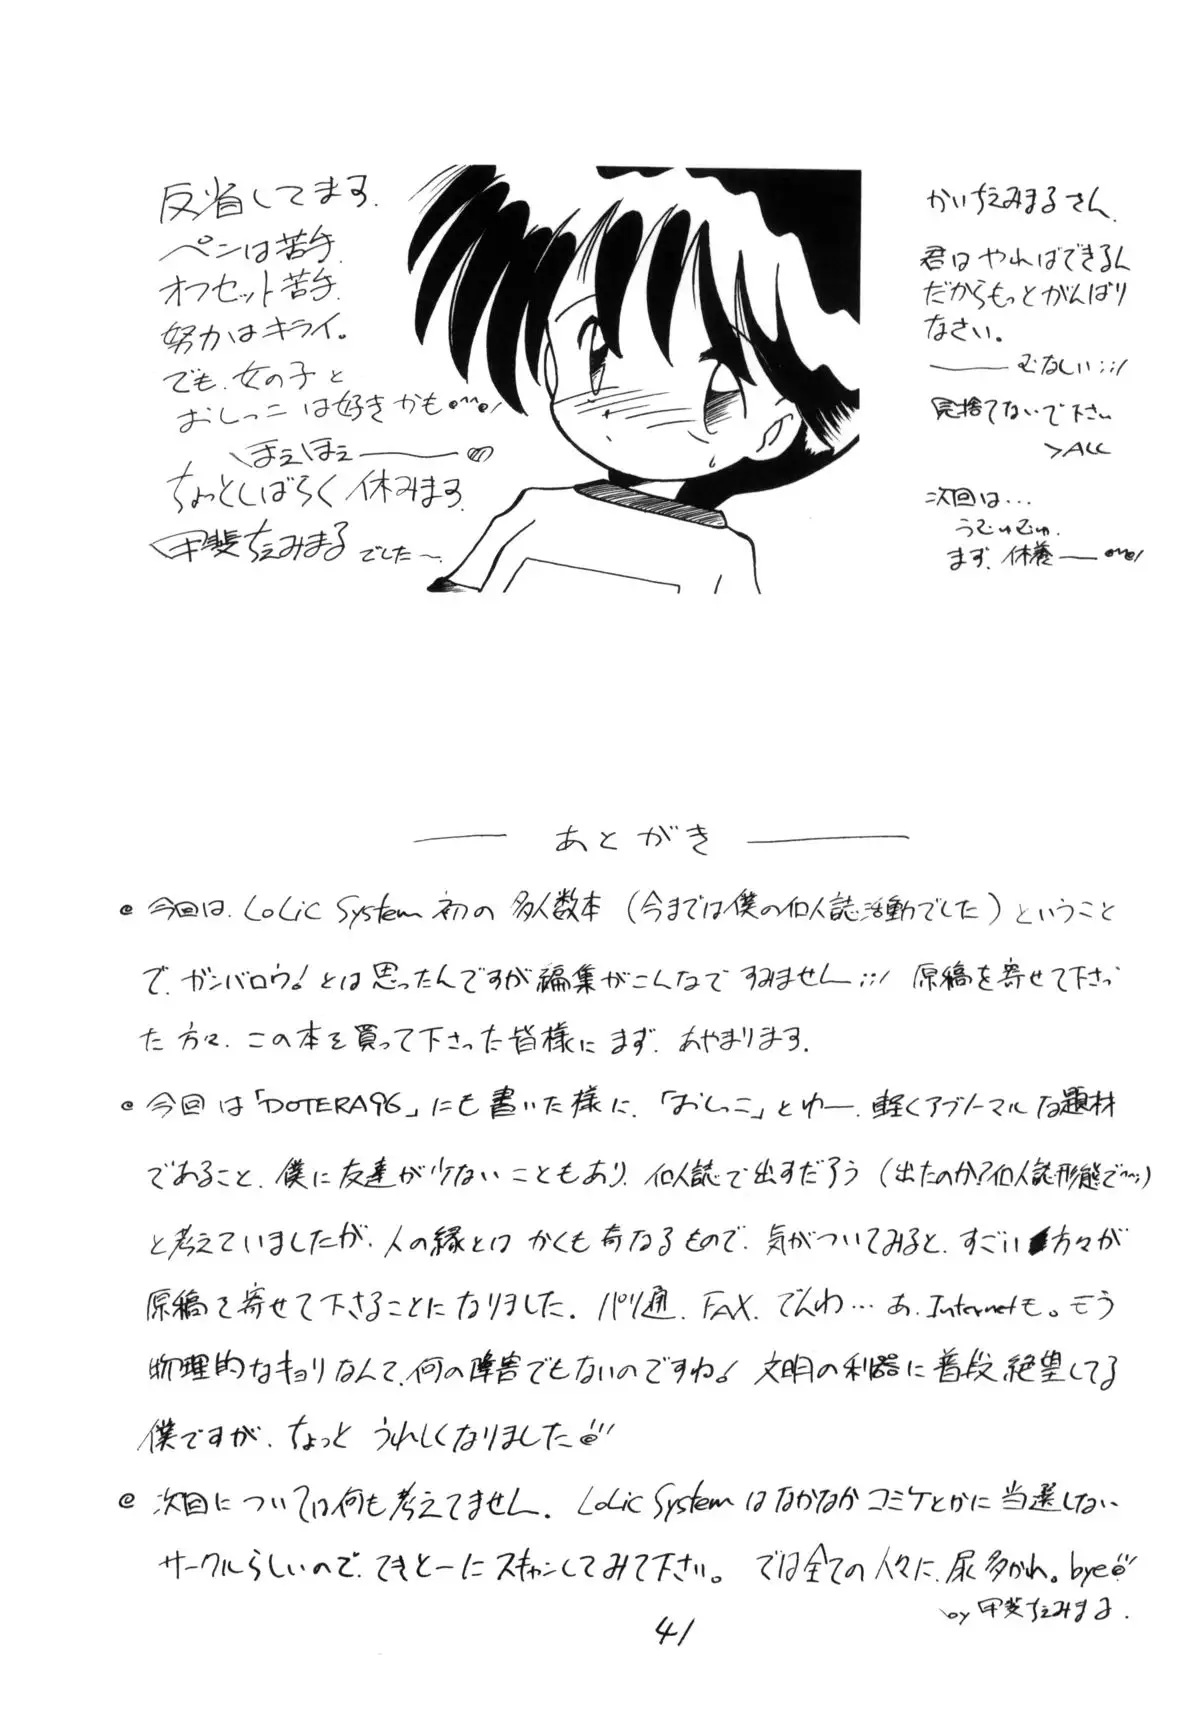 反省してます.
ペンは苦手.
オフセット苦手.
努力はキライ。
でも、女の子と
おしっこは好きかも
ほえほえ――
ちょっとしばらく休みます.
甲斐ちえみまるでした〜.
かいちえみまるさん.
君はやればできるん
だからもっとがんばり
なさい。
――むなしい;;/
見捨てないで下さい
>ALL
次回は...
うむゅむゅ.
まず、休養――
―― あとがき ――
今回は、LoLic System 初の多人数本（今までは僕の個人誌活動でした）ということ
で、ガンバロウ!とは思ったんですが編集がこんなですみません;;/ 原稿を寄せて下さっ
た方々、この本を買って下さった皆様にまず、あやまります.
今回は「DOTERA96」にも書いた様に、「おしっこ」とゆー、軽くアブノーマルな題材
であること、僕に友達が少ないこともあり、個人誌で出すだろう（出たのか?個人誌形態で^^;）
と考えていましたが、人の縁とはかくも奇なるもので、気がついてみると、すごい方々が
原稿を寄せて下さることになりました。パソ通、FAX、でんわ...あ、Internetも。もう
物理的なキョリなんて、何の障害でもないのですね! 文明の利器に普段絶望してる
僕ですが、ちょっとうれしくなりました
次回については何も考えてません。LoLic Systemはなかなかコミケとかに当選しない
サークルらしいので、てきとーにスキャンしてみて下さい。では全ての人々に、尿多かれ。bye
by 甲斐ちえみまる.
41